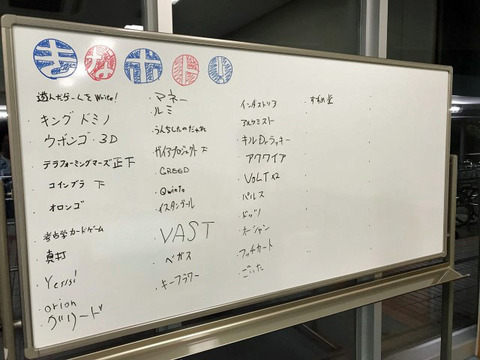 遊んだゲームをWrite!
キングドミノ
ウボンゴ・3D
テラフォーミングマーズ 正下
コインブラ 下
オロンゴ
考古学カードゲーム
真打
Yessi
orion
グリード
マネー
ルミ
うんちしたのだあれ
ガイアプロジェクト 下
GREED
Qwinto
イスタンブール
VAST
ベガス
キーフラワー
インダストリア
アルケミスト
キルDr.ラッキー
アクワイア
VOLT x2
パルス
ごいた
すずめ堂